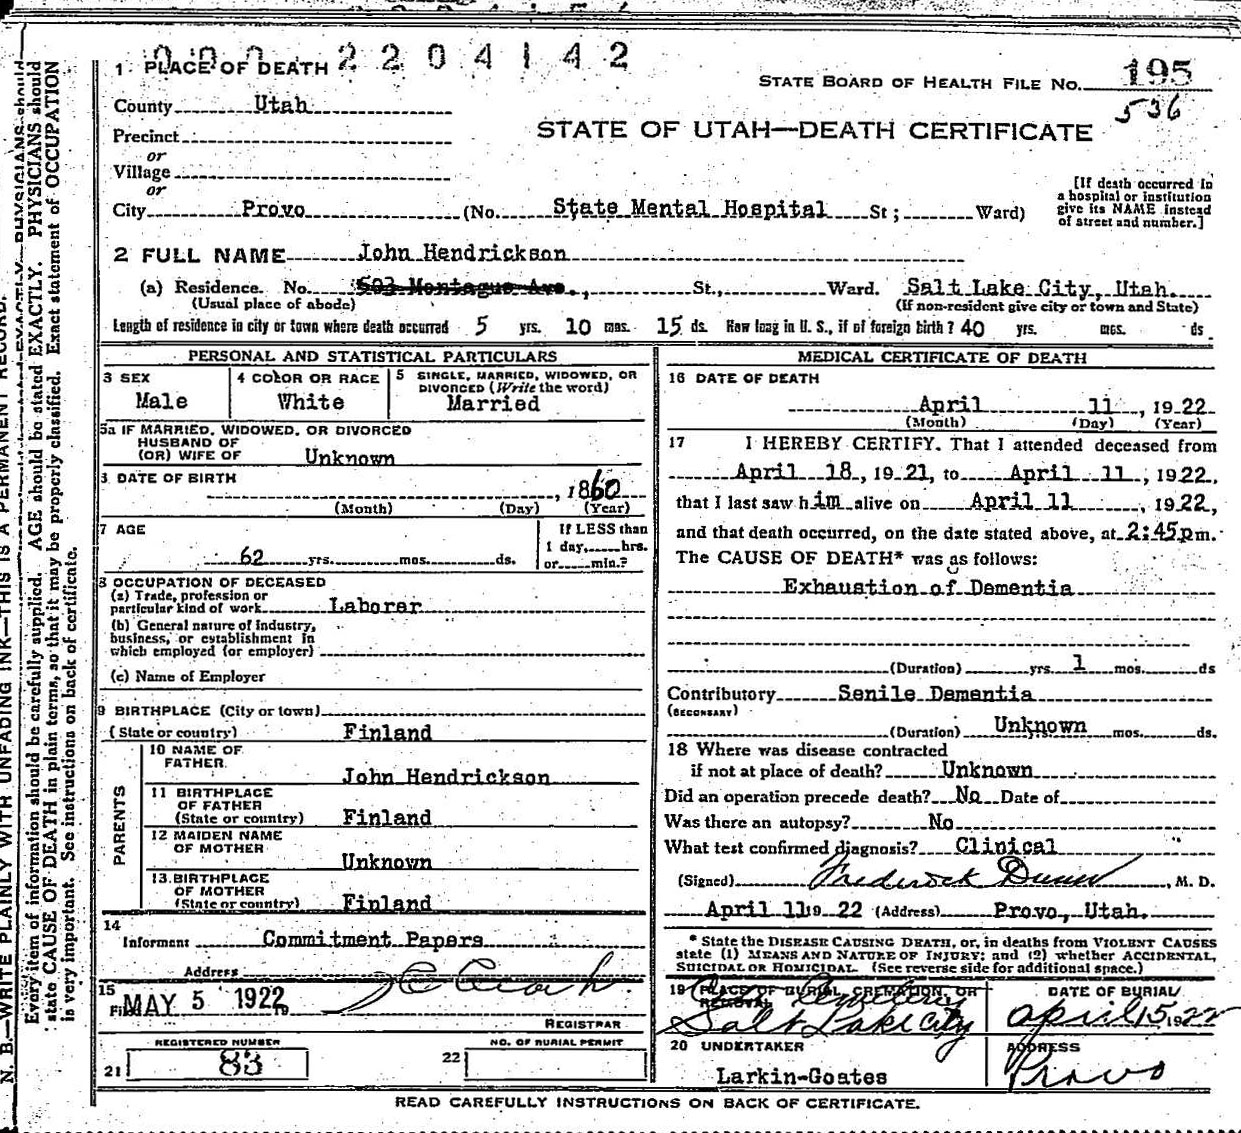 000 2204142
1 PLACE OF DEATH
STATE BOARD OF HEALTH FILE NO. 195
536
County Utah
STATE OF UTAH—DEATH CERTIFICATE
Precinct
or
Village
or
City Provo (No. State Mental Hospital St; Ward)
[If death occurred in
a hospital or institution
give its NAME instead
of street and number.]
2 FULL NAME John Hendrickson
(a) Residence. No. 503 Montague Ave., St., Ward. Salt Lake City, Utah.
(Usual place of abode) (If non-resident give city or town and State)
Length of residence in city or town where death occurred 5 yrs. 10 mos. 15 ds. How long in U. S., if of foreign birth? 40 yrs. mos. ds
PERSONAL AND STATISTICAL PARTICULARS
3 SEX
Male
4 COLOR OR RACE
White
5 SINGLE, MARRIED, WIDOWED, OR
DIVORCED (Write the word)
Married
5a IF MARRIED, WIDOWED, OR DIVORCED
HUSBAND OF
(OR) WIFE OF Unknown
DATE OF BIRTH
, 1860
(Month) (Day) (Year)
7 AGE
62 yrs. mos. ds.
If LESS than
1 day, hrs.
or min.?
8 OCCUPATION OF DECEASED
(a) Trade, profession or
particular kind of work Laborer
(b) General nature of Industry,
business, or establishment in
which employed (or employer)
(c) Name of Employer
9 BIRTHPLACE (City or town)
(State or country) Finland
PARENTS
10 NAME OF
FATHER
John Hendrickson
11 BIRTHPLACE
OF FATHER
(State or country) Finland
12 MAIDEN NAME
OF MOTHER
Unknown
13. BIRTHPLACE
OF MOTHER
(State or country) Finland
14
Informent Commitment Papers
Address
15
Filed MAY 5 1922
REGISTRAR
REGISTERED NUMBER
21 83
NO. OF BURIAL PERMIT
22
MEDICAL CERTIFICATE OF DEATH
16 DATE OF DEATH
April 11, 1922
(Month) (Day) (Year)
17 I HEREBY CERTIFY. That I attended deceased from
April 18, 1921, to April 11, 1922,
that I last saw him alive on April 11, 1922,
and that death occurred, on the date stated above, at 2:45pm.
The CAUSE OF DEATH* was as follows:
Exhaustion of Dementia
(Duration) yrs 1 mos. ds
Contributory Senile Dementia
(SECONDARY)
(Duration) Unknown mos. ds.
18 Where was disease contracted
if not at place of death? Unknown
Did an operation precede death? No Date of
Was there an autopsy? No
What test confirmed diagnosis? Clinical
(Signed) Frederick Dunn, M. D.
April 11 19 22 (Address) Provo, Utah.
* State the DISEASE CAUSING DEATH, or, in deaths from VIOLENT CAUSES
state (1) MEANS AND NATURE OF INJURY; and (2) whether ACCIDENTAL,
SUICIDAL OR HOMICIDAL. (See reverse side for additional space.)
19 PLACE OF BURIAL, CREMATION, OR
REMOVAL
Cemetery
Salt Lake City
DATE OF BURIAL
April 15, 1922
20 UNDERTAKER
Larkin-Goates
ADDRESS
Provo
READ CAREFULLY INSTRUCTIONS ON BACK OF CERTIFICATE.
N. B.—WRITE PLAINLY WITH UNFADING INK—THIS IS A PERMANENT RECORD.
Every item of information should be carefully supplied. AGE should be stated EXACTLY. PHYSICIANS should
state CAUSE OF DEATH in plain terms, so that it may be properly classified. Exact statement of OCCUPATION
is very important. See instructions on back of certificate.